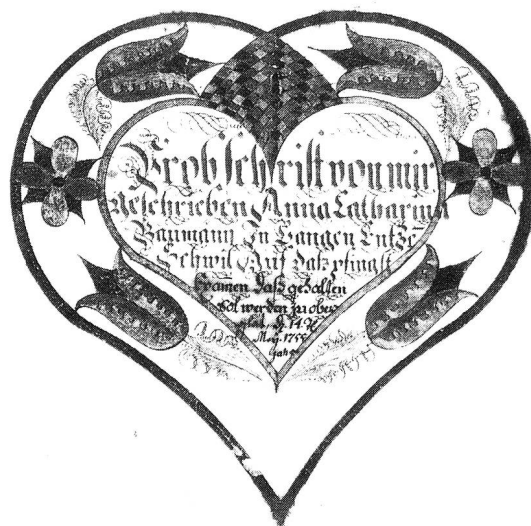 Probschrifft von mir
Geschrieben Anna Catharina
Baumann Jn Langen Entze
Schwil Auf das pfingst
Examen das gehalten
Sol werden zu ober
d. 14.
May. 1755